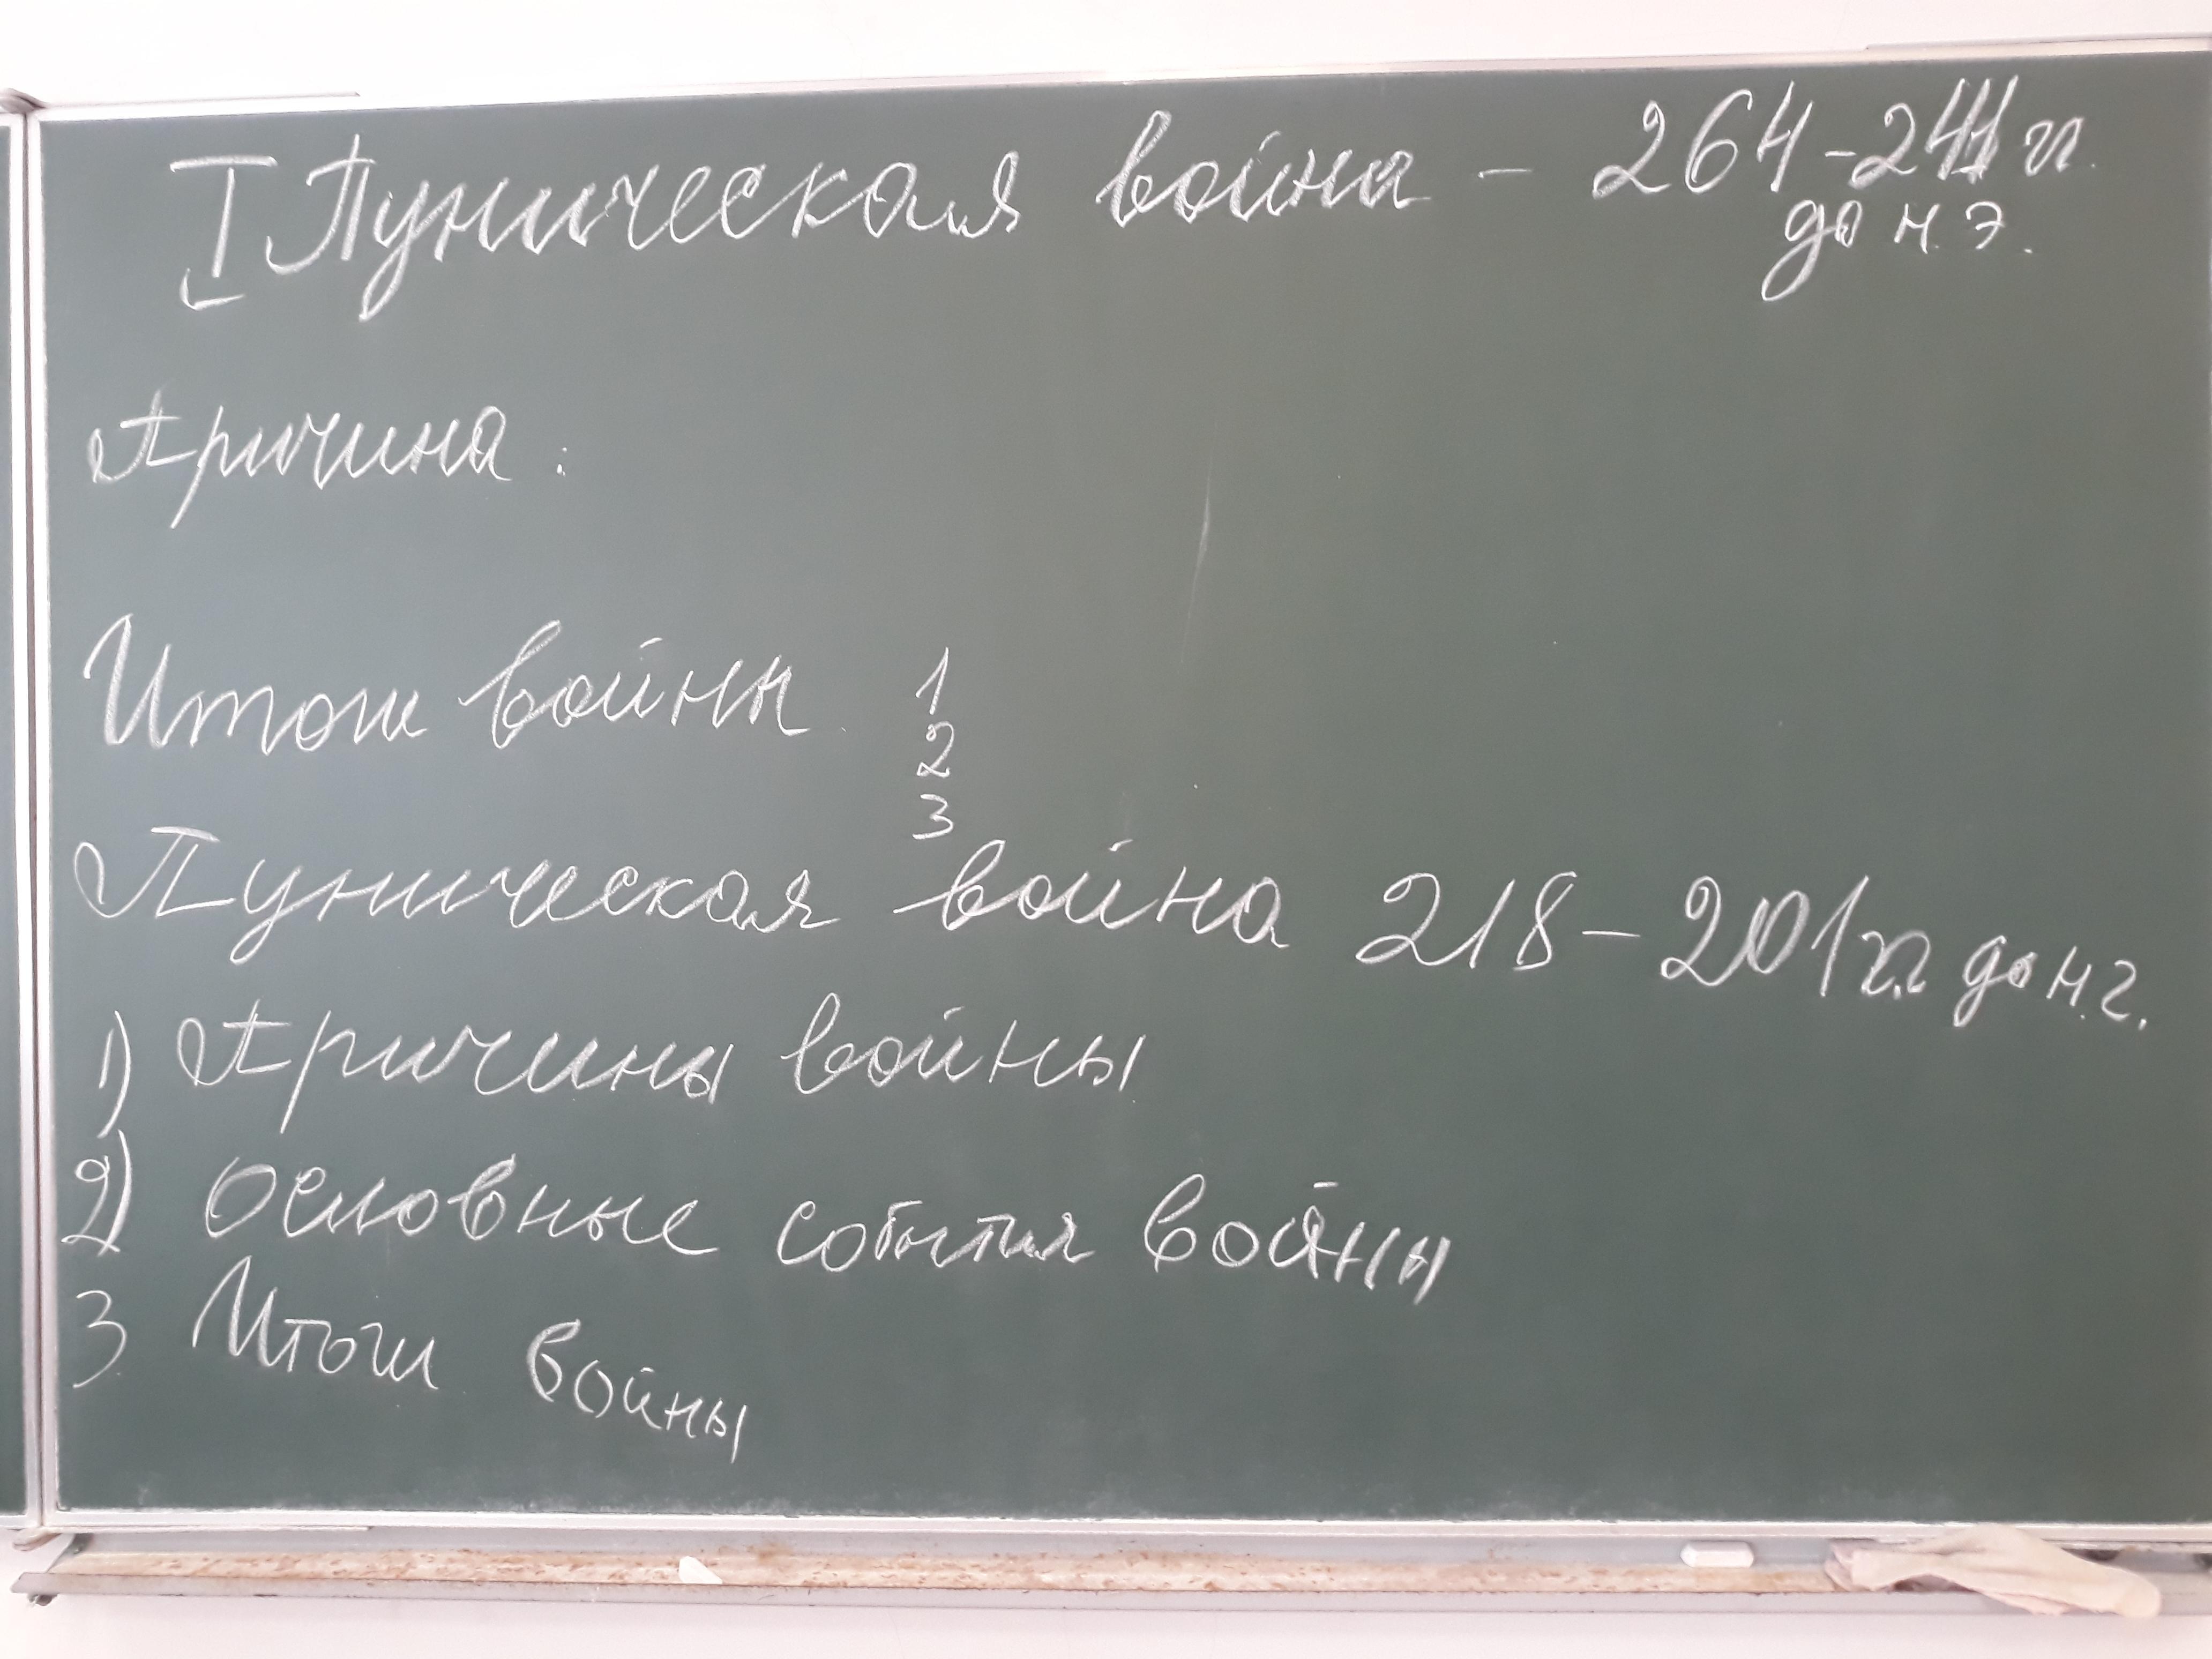 I Пуническая война - 264-241 гг.
до н.э.
Причина:
Итоги войны. 1
2
3
Пуническая война 218-201 гг до н.э.
1) Причины войны
2) Основные события войны
3. Итоги войны